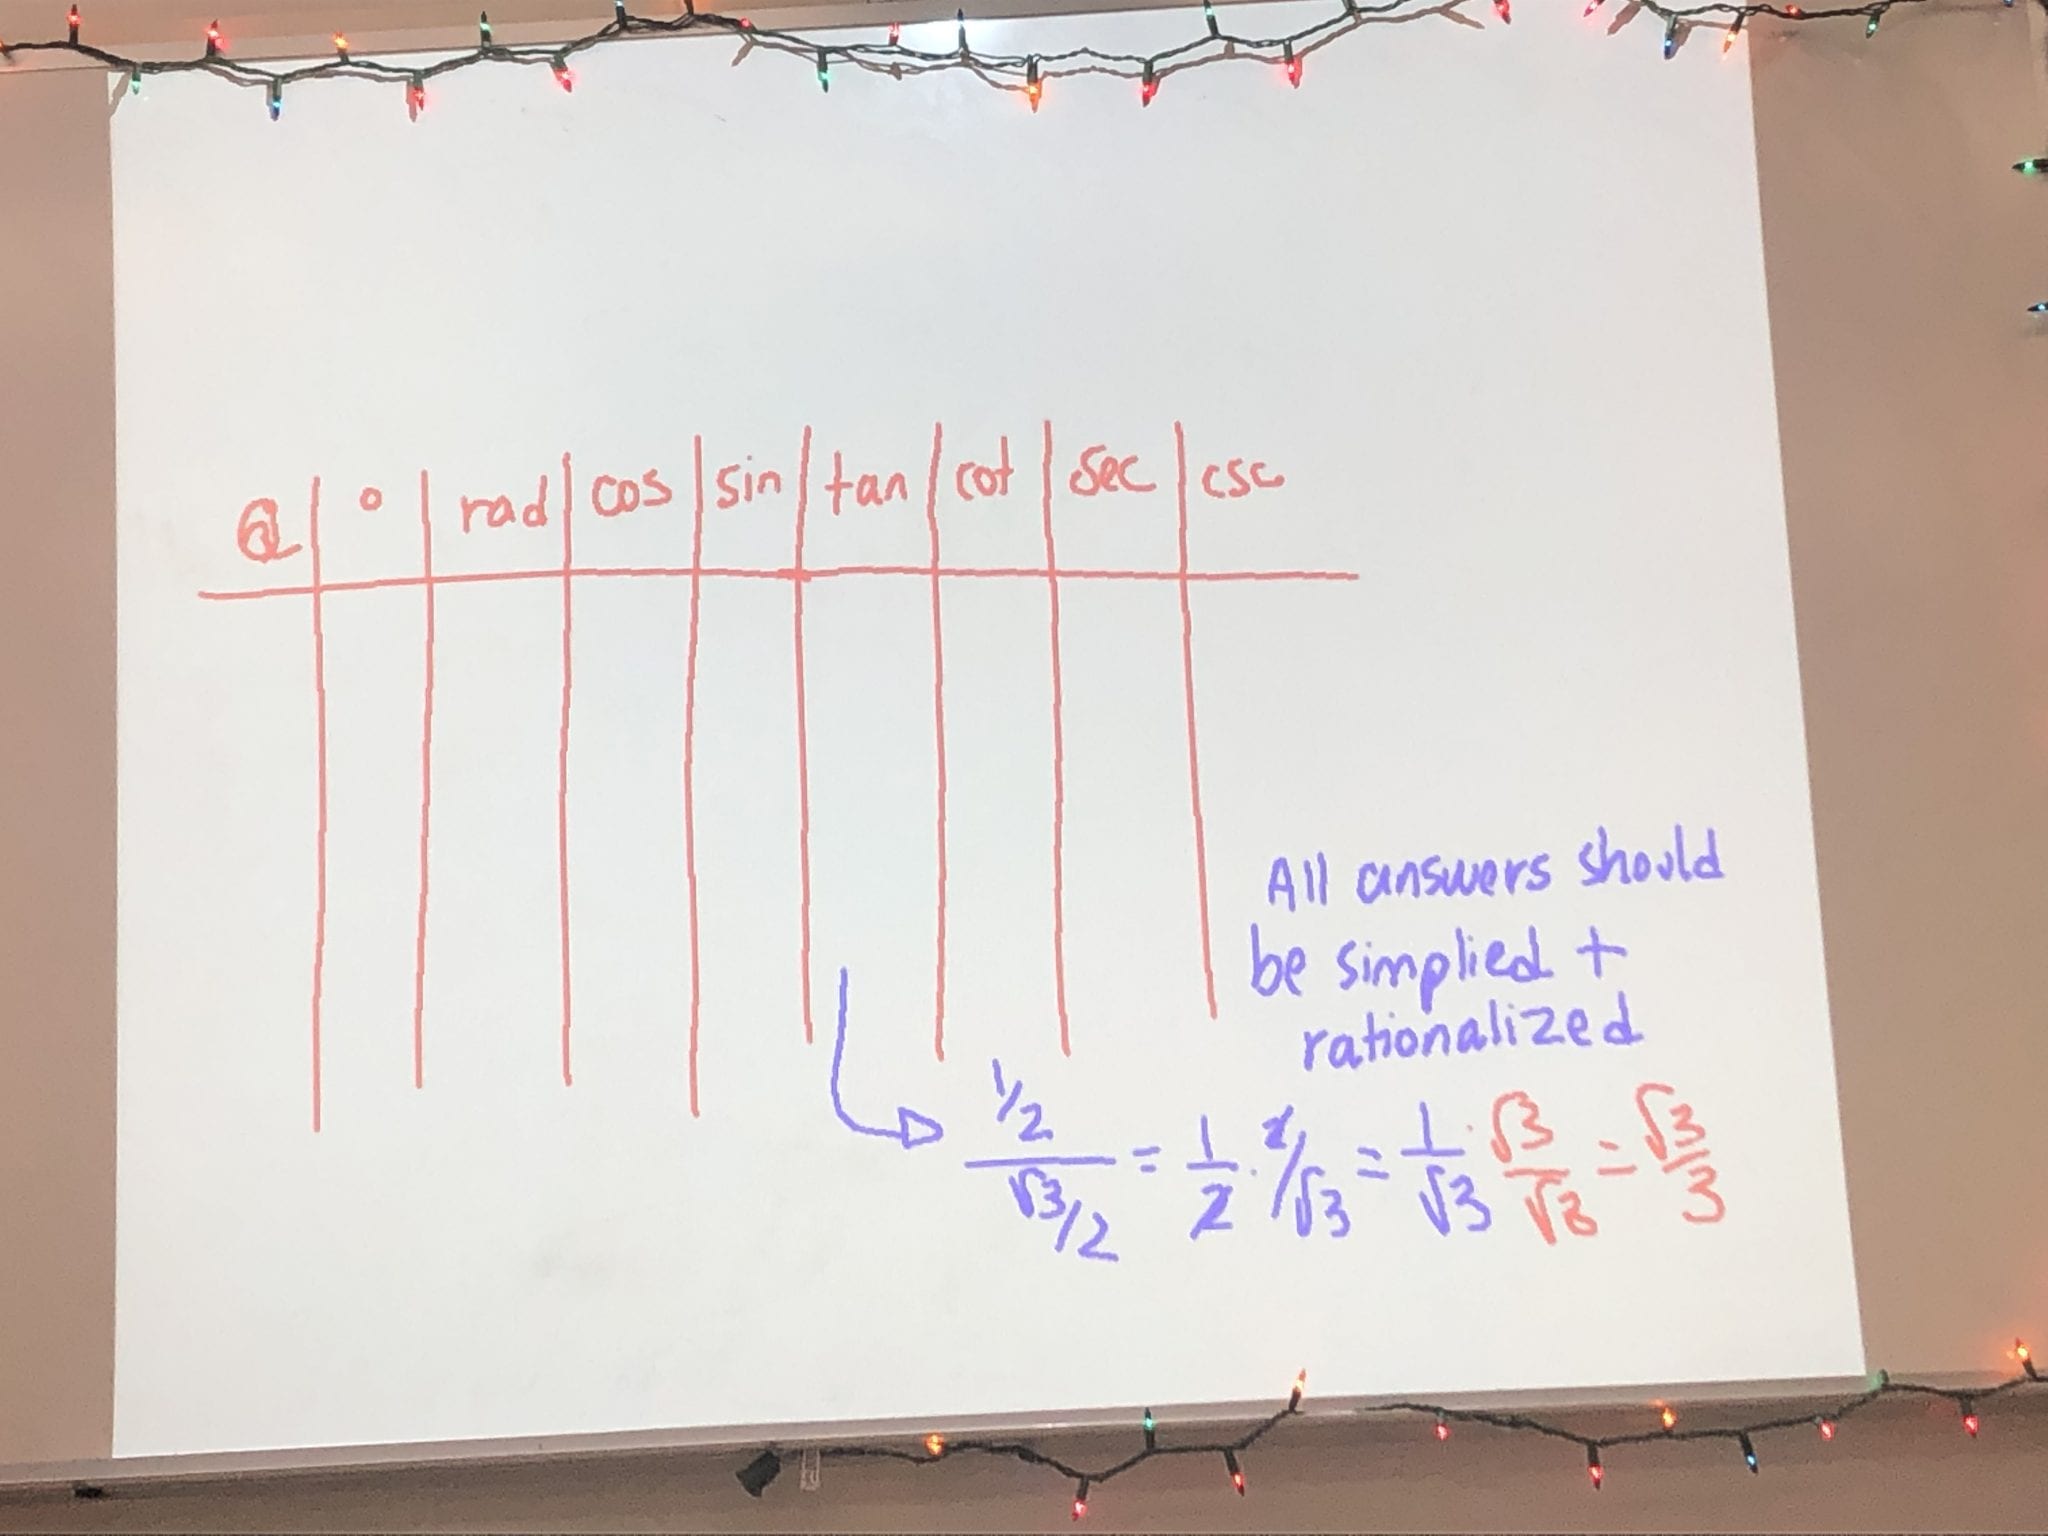 Q ° rad cos sin tan cot sec csc
All answers should
be simplied +
rationalized
1/2 / √3/2 = 1/2 · 2/√3 = 1/√3 · √3/√3 = √3/3